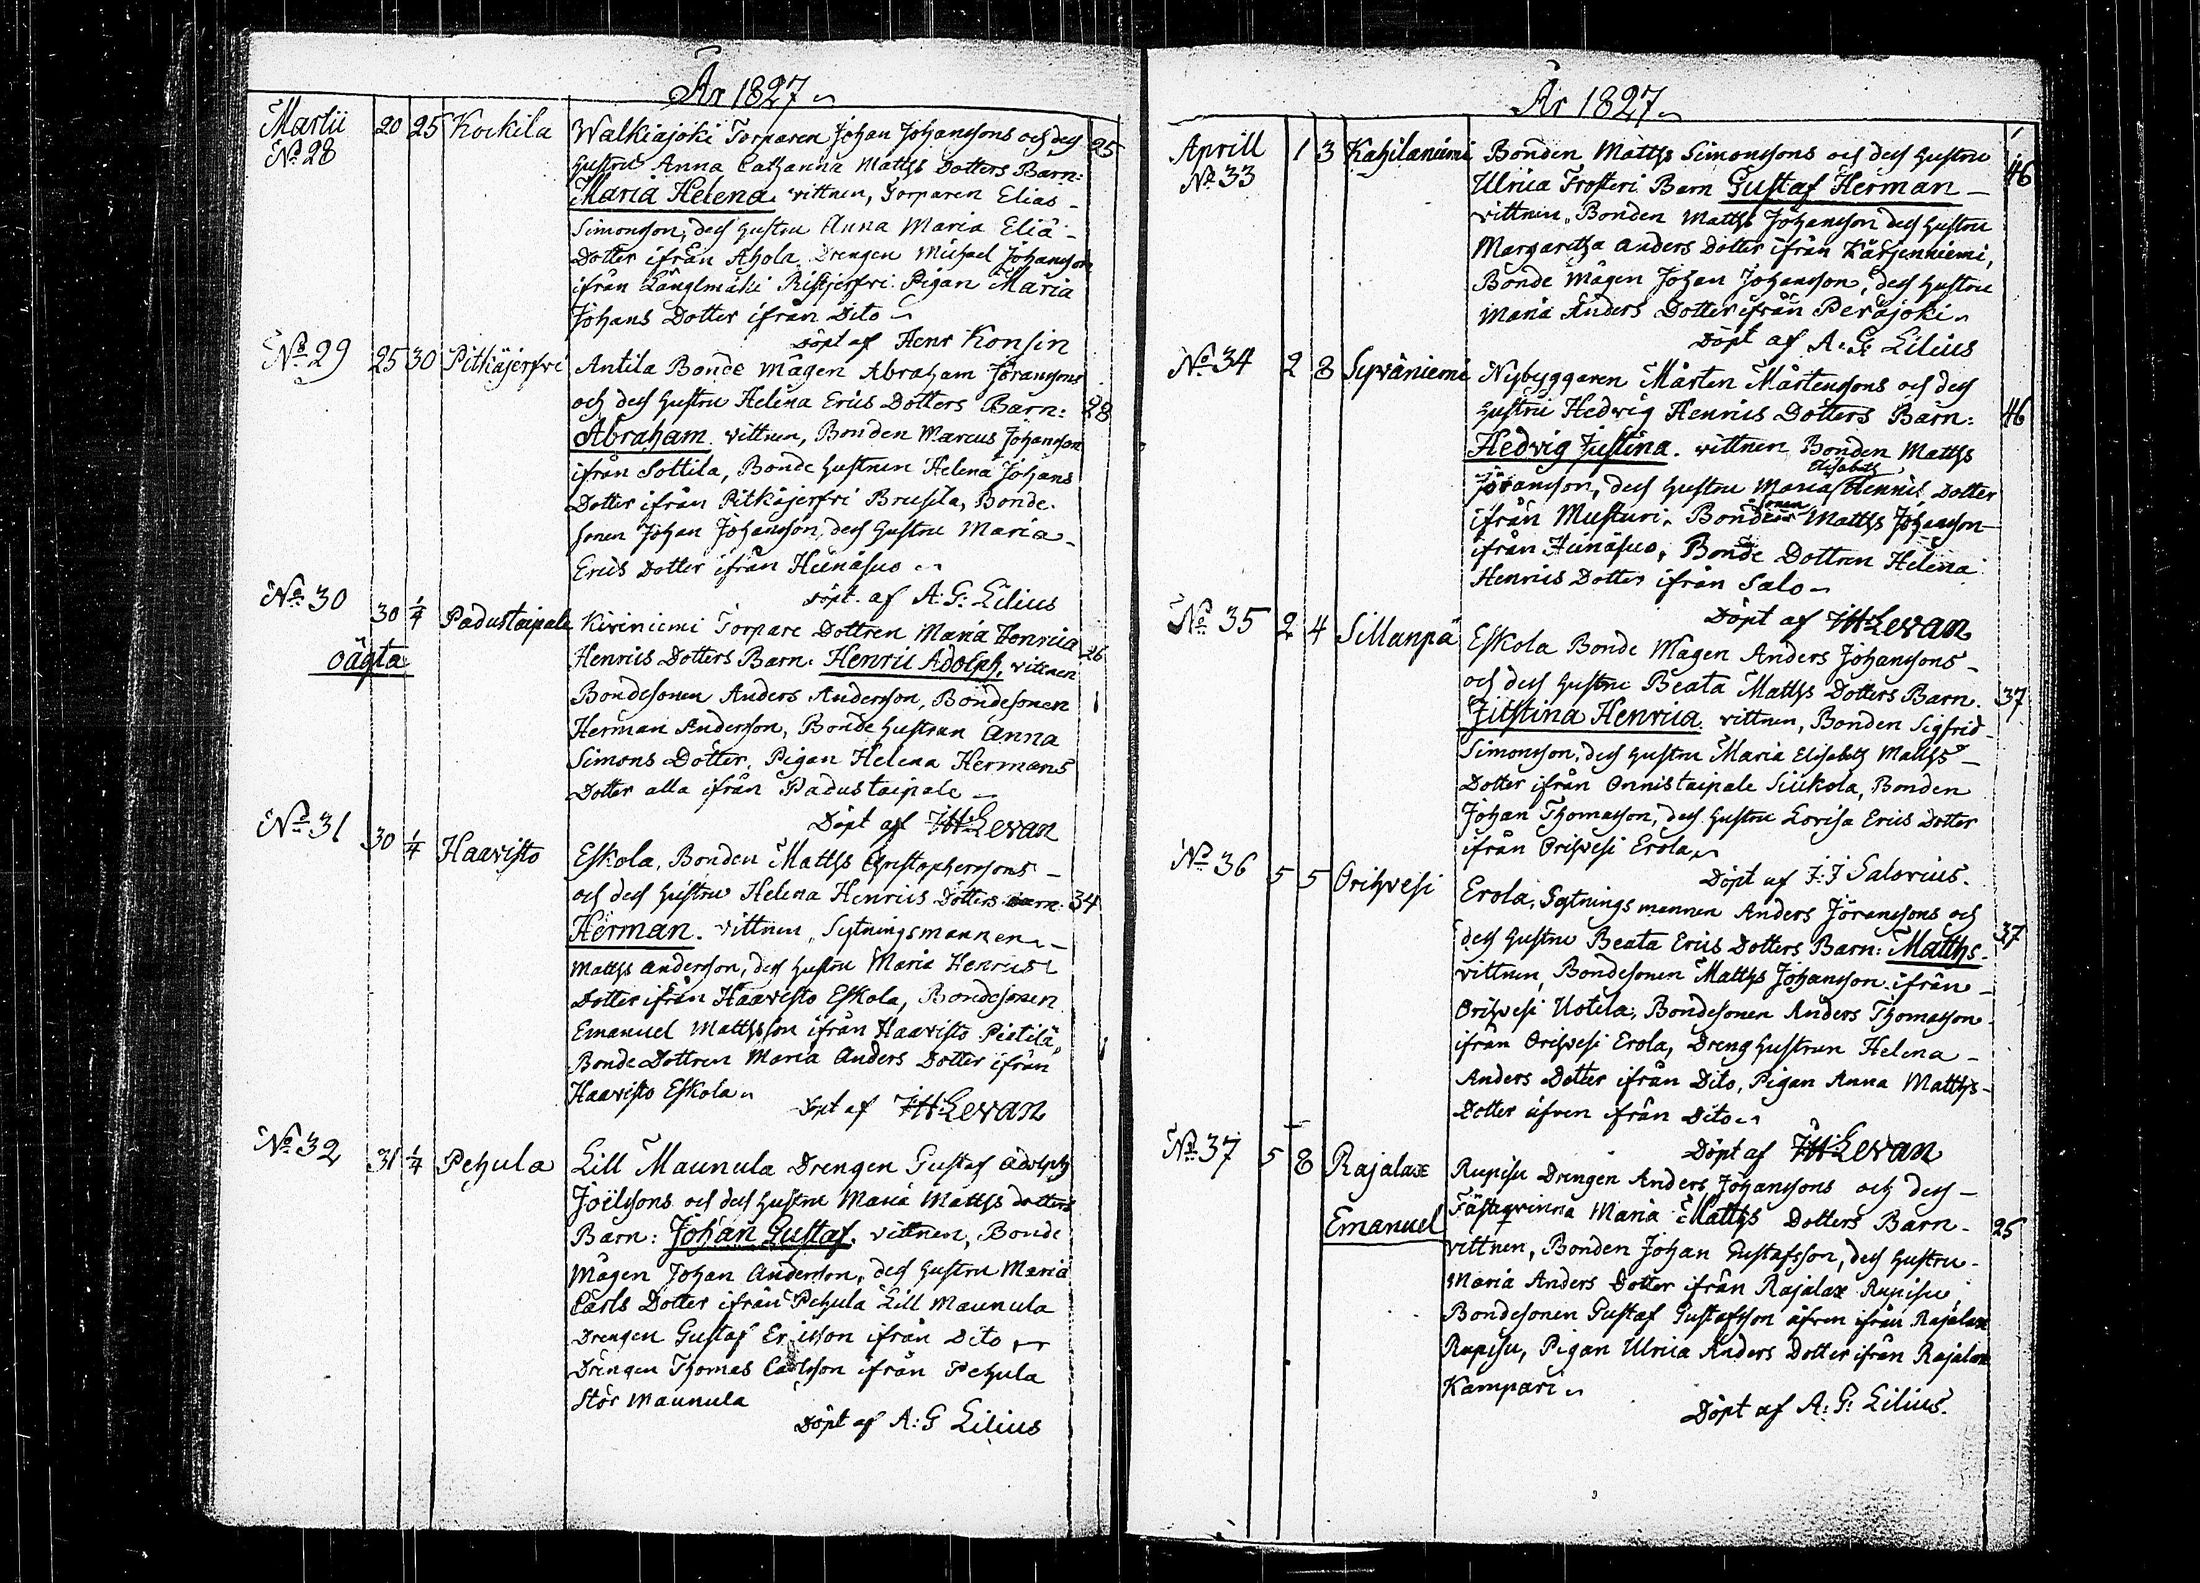 År 1827
Martii 20 25 Kockila Walkiajoki Torparen Johan Johanssons och dess 25
No 28 hustru Anna Catharina Matths Dotters Barn:
Maria Helena. vittnen, Torparen Elias
Simonsson, dess hustru Anna Maria Eliä
Dotter ifrån Ahola, Drengen Michael Johansson
ifrån Länglmäki Pigan Maria
Johans Dotter ifrån Dito
Döpt af Henr Konsin
No 29 25 30 Pitkäjerfvi Antila Bonde Mågen Abraham Göranssons
och dess hustru Helena Erics Dotters Barn: 28
Abraham. vittnen, Bonden Marcus Johansson
ifrån Sottila, Bonde hustrun Helena Johans
Dotter ifrån Pitkäjerfvi Brusila, Bonde
sonen Johan Johansson, dess hustru Maria
Erics Dotter ifrån Heinäsuo
döpt af A: G: Lilius
No 30 30 1/4 Padustaipale Kiviniemi Torpare Dottren Maria Henrica
oägta Henrics Dotters Barn: Henric Adolph. vittnen 26
Bondesonen Anders Andersson, Bondesonen
Herman Andersson, Bonde hustrun Anna
Simons Dotter, Pigan Helena Hermans
Dotter alla ifrån Padustaipale
Döpt af Levan
No 31 30 1/4 Haavisto Eskola, Bonden Matths Christopherssons
och dess hustru Helena Henrics Dotters Barn: 34
Herman. vittnen, Sytningsmannen
Matths Andersson, dess hustru Maria Henrics
Dotter ifrån Haavisto Eskola, Bondesonen
Emanuel Mattsson ifrån Haavisto Pietilä,
Bonde Dottren Maria Anders Dotter ifrån
Haavisto Eskola
Döpt af Levan
No 32 31 1/4 Pehula Lill Maunula Drengen Gustaf Adolph
Joëlssons och dess hustru Maria Matths dotters
Barn: Johan Gustaf. vittnen, Bonde
Mågen Johan Andersson, dess hustru Maria
Carls Dotter ifrån Pehula Lill Maunula
Drengen Gustaf Ericsson ifrån Dito
Drengen Thomas Carlsson ifrån Pehula
Stor Maunula
Döpt af A: G Lilius
År 1827
Aprill 1 3 Kahilaniemi Bonden Matths Simonssons och dess hustru
No 33 Ulrica Frosteri Barn Gustaf Herman 46
vittnen, Bonden Matths Johansson dess hustru
Margaretha Anders dotter ifrån Kärjenniemi,
Bonde Mågen Johan Johansson, dess hustru
Maria Anders Dotter ifrån Peräjoki
Döpt af A. G: Lilius
No 34 2 8 Syväniemi Nybyggaren Mårten Mårtenssons och dess
hustru Hedvig Henrics Dotters Barn: 46
Hedvig Justina. vittnen Bonden Matths
Elisabeth
Göransson, dess hustru Maria Henrics Dotter
sonen
ifrån Musturi. Bonde Matths Johansson
ifrån Heinäsuo, Bonde Dottren Helena
Henrics Dotter ifrån Salo
Döpt af Levan
No 35 2 4 Sillanpä Eskola Bonde Mågen Anders Johanssons
och dess hustru Beata Matths Dotters Barn. 37
Justina Henrica vittnen, Bonden Sigfrid
Simonsson, dess hustru Maria Elisabeth Matths
Dotter ifrån Onnistaipale Siukola, Bonden
Johan Thomasson, dess hustru Lovisa Erics Dotter
ifrån Orihvesi Erola
Döpt af J: J Salovius.
No 36 5 5 Orihvesi Erola, Sytnings mannen Anders Göranssons och
dess hustru Beata Erics Dotters Barn: Matths. 37
vittnen, Bondesonen Matths Johansson ifrån
Orihvesi Uotila, Bondesonen Anders Thomasson
ifrån Orihvesi Erola, Dreng hustrun Helena
Anders Dotter ifrån Dito, Pigan Anna Matths
Dotter äfven ifrån Dito
Döpt af Levan
No 37 5 8 Rajalax Rupisu Drengen Anders Johanssons och dess
Emanuel Fästeqvinna Maria Matths Dotters Barn 25
vittnen, Bonden Johan Gustafsson, dess hustru
Maria Anders Dotter ifrån Rajalax Rupisu,
Bondesonen Gustaf Gustafsson äfven ifrån Rajalax
Rupisu, Pigan Ulrica Anders Dotter ifrån Rajalax
Kampari
Döpt af A: G: Lilius.